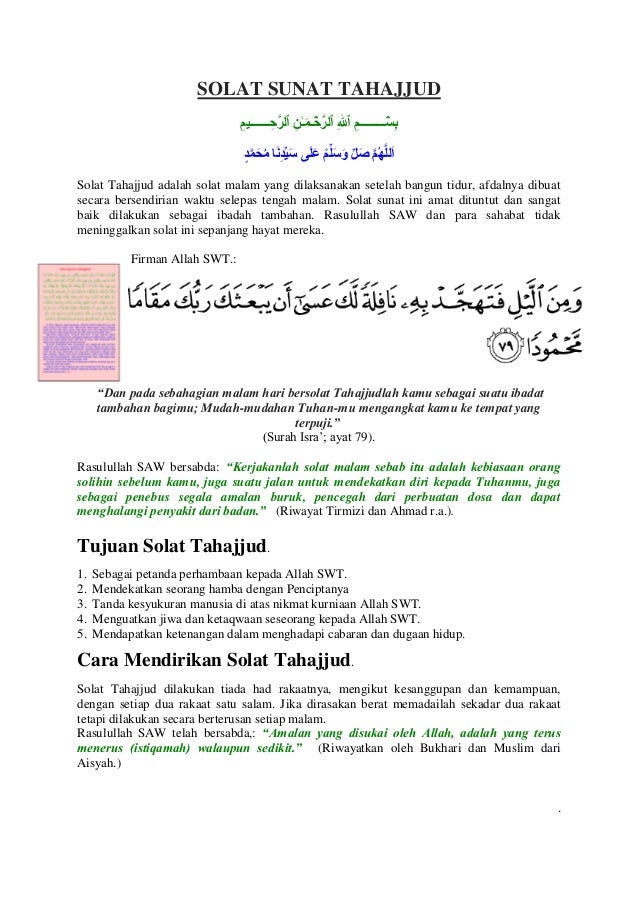 SOLAT SUNAT TAHAJJUD
بِسْــــــــمِ ٱللهِ ٱلرَّحْـمَـٰنِ ٱلرَّحِــــــيمِ
اَللَّهُمَّ صَلِّ وَسَلِّمْ عَلَى سَيِّدِنَا مُحَمَّدٍ
Solat Tahajjud adalah solat malam yang dilaksanakan setelah bangun tidur, afdalnya dibuat
secara bersendirian waktu selepas tengah malam. Solat sunat ini amat dituntut dan sangat
baik dilakukan sebagai ibadah tambahan. Rasulullah SAW dan para sahabat tidak
meninggalkan solat ini sepanjang hayat mereka.
Firman Allah SWT.:
وَمِنَ ٱلَّيْلِ فَتَهَجَّدْ بِهِۦ نَافِلَةً لَّكَ عَسَىٰٓ أَن يَبْعَثَكَ رَبُّكَ مَقَامًا
مَّحْمُودًا ٧٩
“Dan pada sebahagian malam hari bersolat Tahajjudlah kamu sebagai suatu ibadat
tambahan bagimu; Mudah-mudahan Tuhan-mu mengangkat kamu ke tempat yang
terpuji.”
(Surah Isra’; ayat 79).
Rasulullah SAW bersabda: “Kerjakanlah solat malam sebab itu adalah kebiasaan orang
solihin sebelum kamu, juga suatu jalan untuk mendekatkan diri kepada Tuhanmu, juga
sebagai penebus segala amalan buruk, pencegah dari perbuatan dosa dan dapat
menghalangi penyakit dari badan.” (Riwayat Tirmizi dan Ahmad r.a.).
Tujuan Solat Tahajjud.
1. Sebagai petanda perhambaan kepada Allah SWT.
2. Mendekatkan seorang hamba dengan Penciptanya
3. Tanda kesyukuran manusia di atas nikmat kurniaan Allah SWT.
4. Menguatkan jiwa dan ketaqwaan seseorang kepada Allah SWT.
5. Mendapatkan ketenangan dalam menghadapi cabaran dan dugaan hidup.
Cara Mendirikan Solat Tahajjud.
Solat Tahajjud dilakukan tiada had rakaatnya, mengikut kesanggupan dan kemampuan,
dengan setiap dua rakaat satu salam. Jika dirasakan berat memadailah sekadar dua rakaat
tetapi dilakukan secara berterusan setiap malam.
Rasulullah SAW telah bersabda,: “Amalan yang disukai oleh Allah, adalah yang terus
menerus (istiqamah) walaupun sedikit.” (Riwayatkan oleh Bukhari dan Muslim dari
Aisyah.)
.